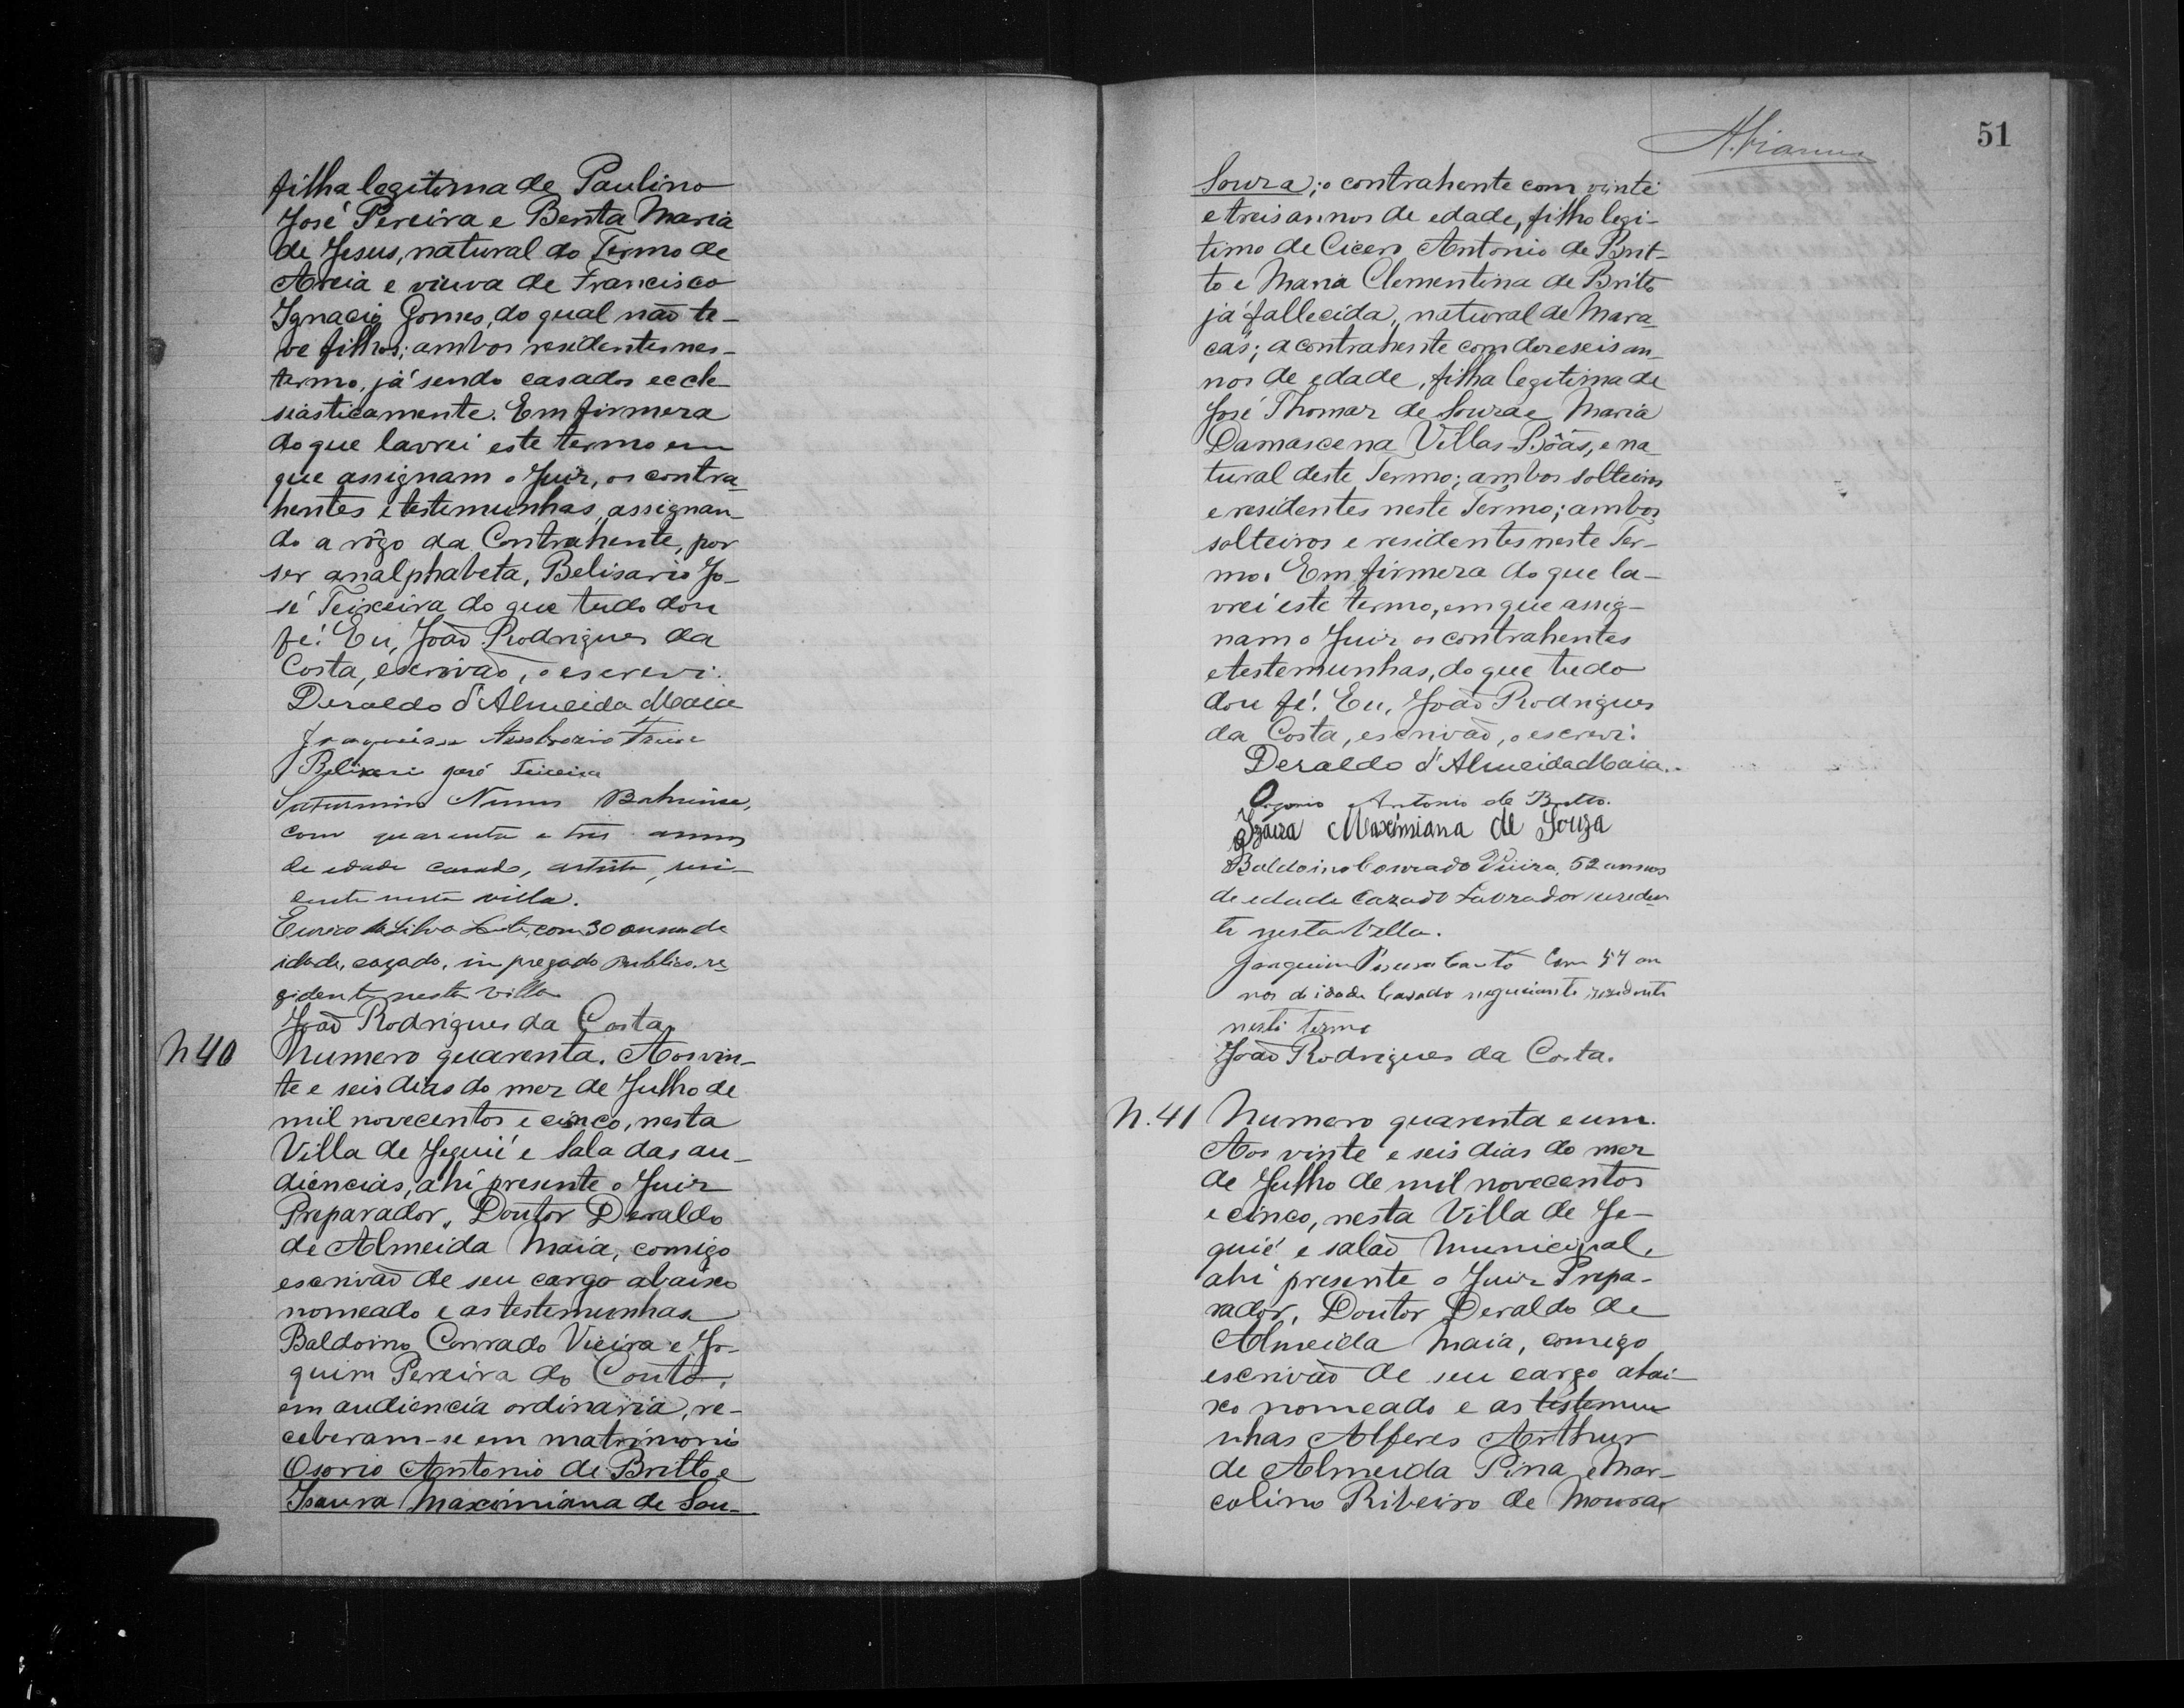 filha legitima de Paulino
José Pereira e Benta Maria
de Jesus, natural do Termo de
Areia e viuva de Francisco
Ignacio Gomes, do qual não te-
ve filhos; ambos residentes nes-
termo, já sendo casados eccle-
siasticamente. Em firmeza
do que lavrei este termo em
que assignam o Juiz, os contra-
hentes e testemunhas, assignan-
do a rôgo da Contrahente, por
ser analphabeta, Belisario Jo-
sé Teixeira do que tudo dou
fé. Eu, João Rodrigues da
Costa, escrivão, o escrevi.
Deraldo d'Almeida Maia
Belizari José Teixeira
Saturnino Nunes Bahiense,
com quarenta e tres annos
de edade casado, artista, resi-
dente nesta villa.
Eurico da Silva com 30 annos de
idade, cazado, impregado publico, re-
zidente nesta villa
João Rodrigues da Costa.
N 40 Numero quarenta. Aos vin-
te e seis dias do mez de Julho de
mil novecentos e cinco, nesta
Villa de Jequié e Sala das au-
diencias, ahi presente o Juiz
Preparador, Doutor Deraldo
de Almeida Maia, comigo
escrivão de seu cargo abaixo
nomeado e as testemunhas
Baldoino Conrado Vieira e Jo-
quim Pereira do Couto,
em audiencia ordinaria, re-
ceberam-se em matrimonio
Osorio Antonio de Britto e
Isaura Maximiana de Sou-
51
Souza; o contrahente com vinte
e treis annos de edade, filho legi-
timo de Cicero Antonio de Brit-
to e Maria Clementina de Brito
já fallecida, natural de Mara-
cás; a contrahente com dezeseis an-
nos de edade, filha legitima de
José Thomaz de Souza e Maria
Damascena Villas-Bôas, e na-
tural deste Termo; ambos solteiros
e residentes neste Termo; ambos
solteiros e residentes neste Ter-
mo. Em firmeza do que la-
vrei este termo, em que assig-
nam o Juiz os contrahentes
e testemunhas, do que tudo
dou fé. Eu, João Rodrigues
da Costa, escrivão, o escrevi.
Deraldo d'Almeida Maia.
Antonio de Britto.
Izaura Maximiana de Souza
Baldoino Conrado Vieira, 52 annos
de edade Cazado Lavrador reseden
te nesta Villa.
Joaquim Pereira Couto Com 54 an
nos de idade Casado negociante rezidente
neste termo
João Rodrigues da Costa.
N. 41 Numero quarenta e um.
Aos vinte e seis dias do mez
de Julho de mil novecentos
e cinco, nesta Villa de Je-
quié e salão Municipal,
ahi presente o Juiz Prepa-
rador, Doutor Deraldo de
Almeida Maia, comigo
escrivão de seu cargo abai-
xo nomeado e as testemu
nhas Alferes Arthur
de Almeida Pina e Mar-
colino Ribeiro de Moura,